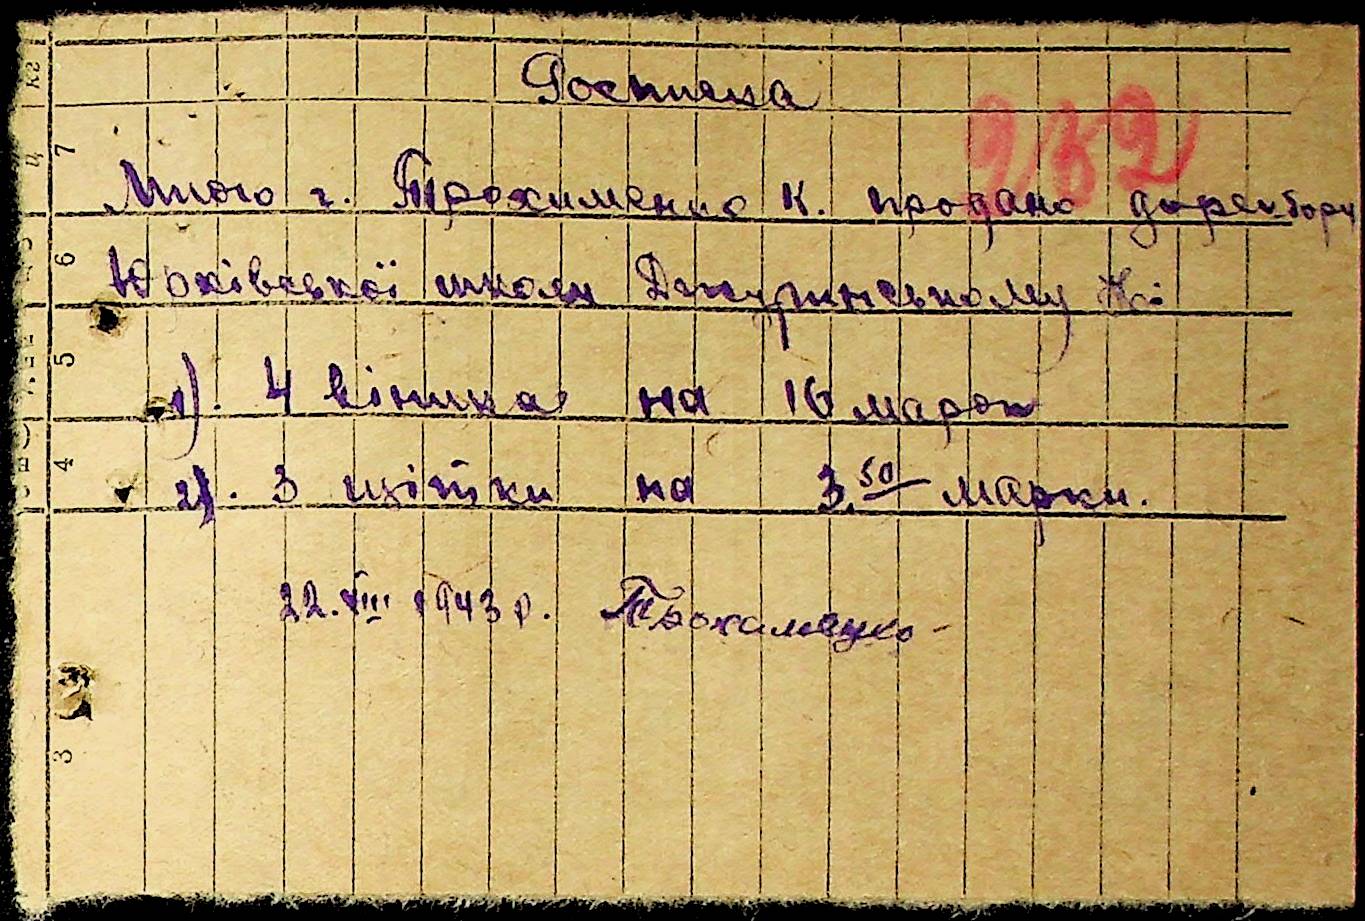 Росписка
262
Мною г. Трохименко К. продано директору
Юрківської школи
1). 4 віника на 16 марок
2). 3 щітки на 3.50 марки.
22.VIII 1943 р. Трохименко
кг
ц
7
6
5
4
3